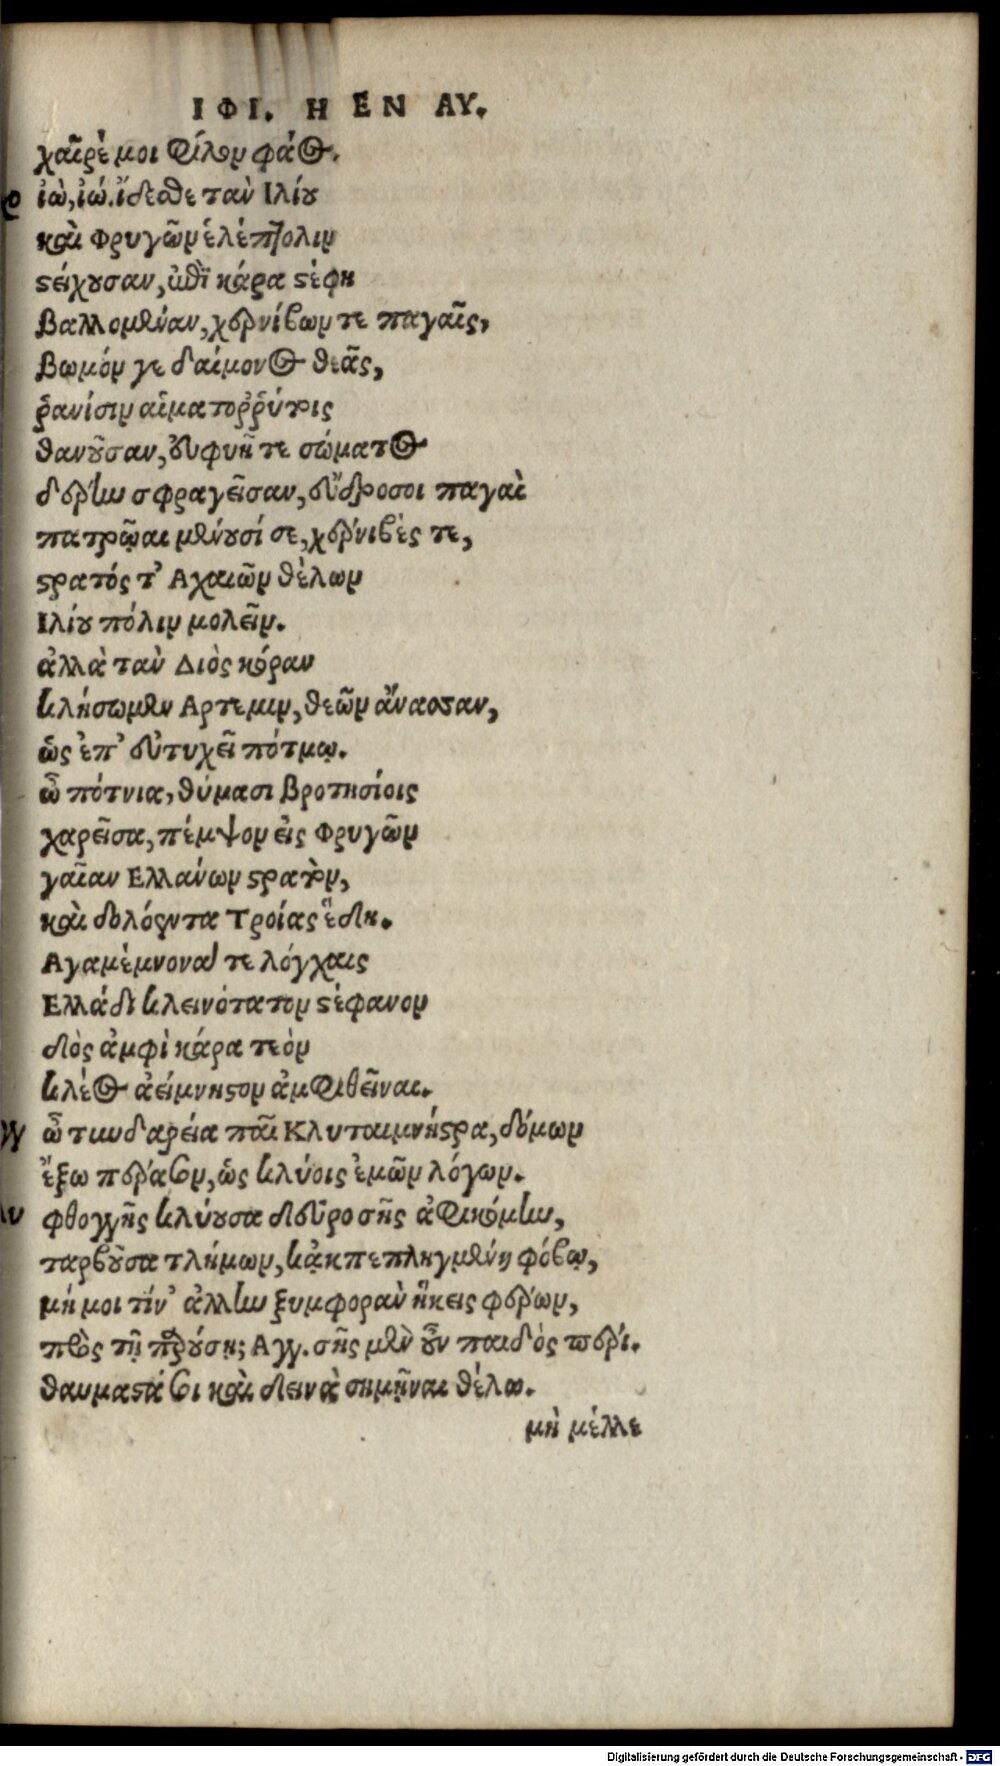 ΙΦΙ. Η ΕΝ ΑΥ.
χαῖρέ μοι φίλον φάος.
ἰὼ, ἰώ. ἴδεσθε τὰν Ιλίου
καὶ Φρυγῶν ἑλέπτολιν
στείχουσαν, ἐπὶ κάρα στέφη
βαλλομέναν, χερνίβων τε παγαῖς,
βωμόν γε δαίμονος θεᾶς,
ῥανίσιν αἱματοῤῥύτοις
θανοῦσαν, εὐφυῆ τε σώματος
δέρην σφραγεῖσαν, εὔδροσοι παγαὶ
πατρῷαι μένουσί σε, χέρνιβές τε,
στρατός τ' Αχαιῶν θέλων
Ιλίου πόλιν μολεῖν.
ἀλλὰ τὰν Διὸς κόραν
κλήσωμεν Αρτεμιν, θεῶν ἄνασσαν,
ὡς ἐπ' εὐτυχεῖ πότμῳ.
ὦ πότνια, θύμασι βροτησίοις
χαρεῖσα, πέμψον εἰς Φρυγῶν
γαῖαν Ελλάνων στρατὸν,
καὶ δολόεντα Τροίας ἕδη.
Αγαμέμνονα τε λόγχαις
Ελλάδι κλεινότατον στέφανον
δὸς ἀμφὶ κάρα τεὸν
κλέος ἀείμνηστον ἀμφιθεῖναι.
ὦ τυνδαρεία παῖ Κλυταιμνήστρα, δόμων
ἔξω πέρασον, ὡς κλύοις ἐμῶν λόγων.
φθογγῆς κλύουσα δεῦρο σῆς ἀφικόμην,
ταρβοῦσα τλήμων, κᾀκπεπληγμένη φόβῳ,
μή μοι τίν' ἄλλην ξυμφορὰν ἥκεις φέρων,
πρὸς τῇ παρούσῃ; Αγγ. σῆς μὲν οὖν παιδὸς πέρι.
θαυμαστά σοι καὶ δεινὰ σημῆναι θέλω.
μὴ μέλλε